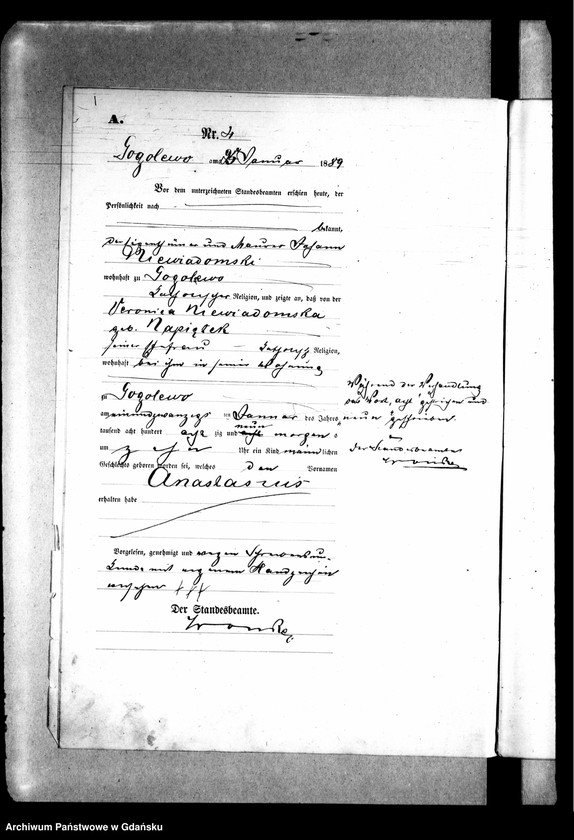 A.
Nr. 4
Gogolewo am 25 Januar 1889
Vor dem unterzeichneten Standesbeamten erschien heute, der
Persönlichkeit nach
bekannt,
der Eigenthümer und Maurer Johann
Niewiadomski
wohnhaft zu Gogolewo
katholischer Religion, und zeigte an, daß von der
Veronica Niewiadomska
geb. Napiątek
seiner Ehefrau katholisch Religion,
wohnhaft bei ihm in seiner Wohnung
zu Gogolewo
am einundzwanzigs ten Januar des Jahres
tausend acht hundert acht zig und neun
acht morgens
um zehn Uhr ein Kind männlichen
Geschlechts geboren worden sei, welches den Vornamen
Anastasius
erhalten habe
Vorgelesen, genehmigt und wegen Schreibensun-
kunde mit eigenem Handzeichen
versehen † † †
Der Standesbeamte.
Während der Verhandlung
das Wort, acht gestrichen und
neun geschrieben.
Der Standesbeamte
Archiwum Państwowe w Gdańsku